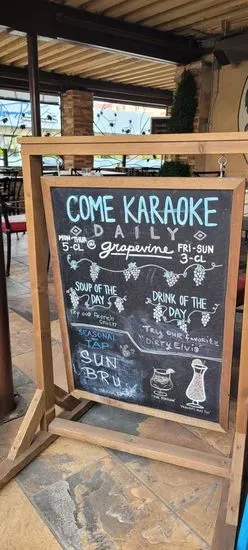 COME KARAOKE
DAILY
MON-THUR
5-CL @ grapevine
FRI-SUN
3-CL
SOUP OF THE
DAY
Try our French
DRINK OF THE
DAY
Try our favorite
"DIRTY ELVIS"
SEASONAL
TAP
SUN
BRU